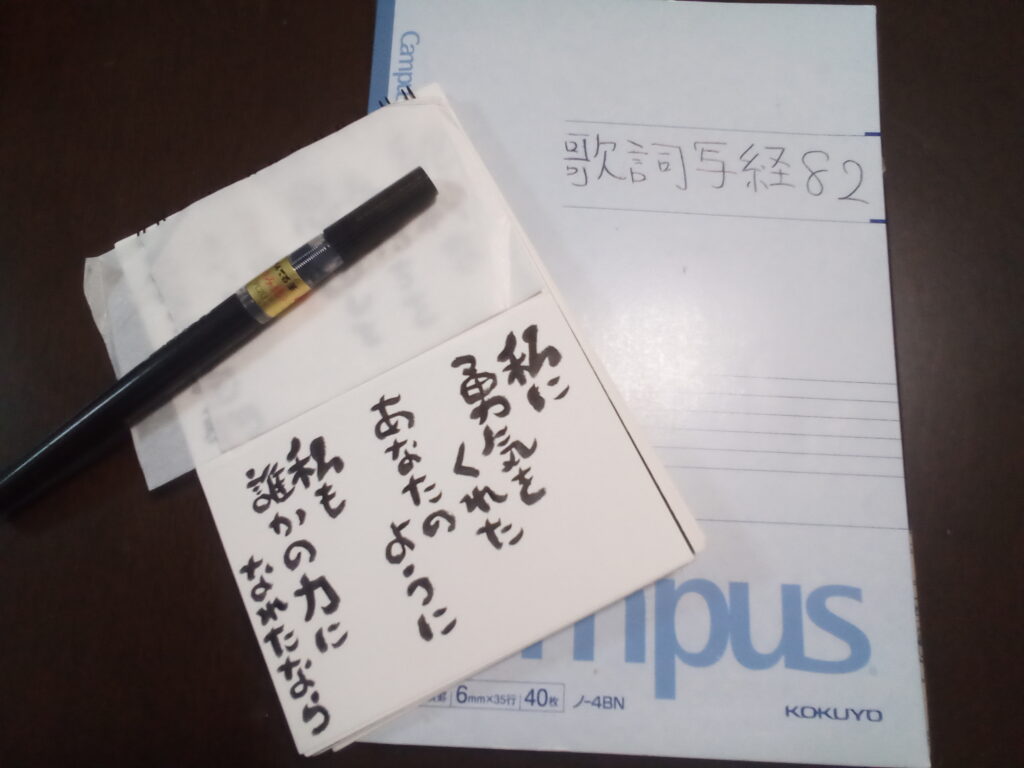 Campus
歌詞写経82
私に
勇気を
くれた
あなたの
ように
私も
誰かの力に
なれたなら
mpus
6mm×35行 40枚 ノ-4BN
KOKUYO